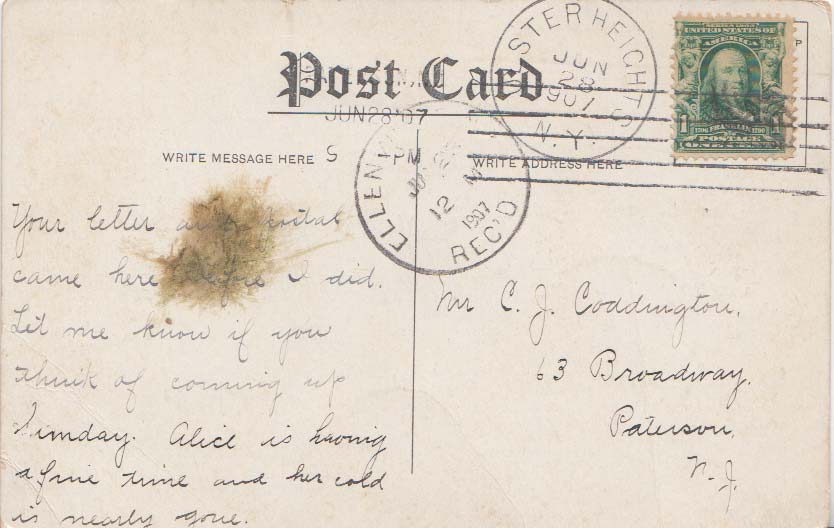 Post Card
JUN 28 '07
S PM
STER HEIGHTS
JUN
28
1907
N.Y.
SERIES 1902
UNITED STATES OF
AMERICA
1 1706 FRANKLIN 1790 1
POSTAGE
ONE CENT
P
WRITE MESSAGE HERE
WRITE ADDRESS HERE
ELLEN
12 M
1907
REC'D
Your letter and postal
came here before I did.
Let me know if you
think of coming up
Sunday. Alice is having
a fine time and her cold
is nearly gone.
Mr C. J. Coddington,
63 Broadway,
Paterson,
N. J.